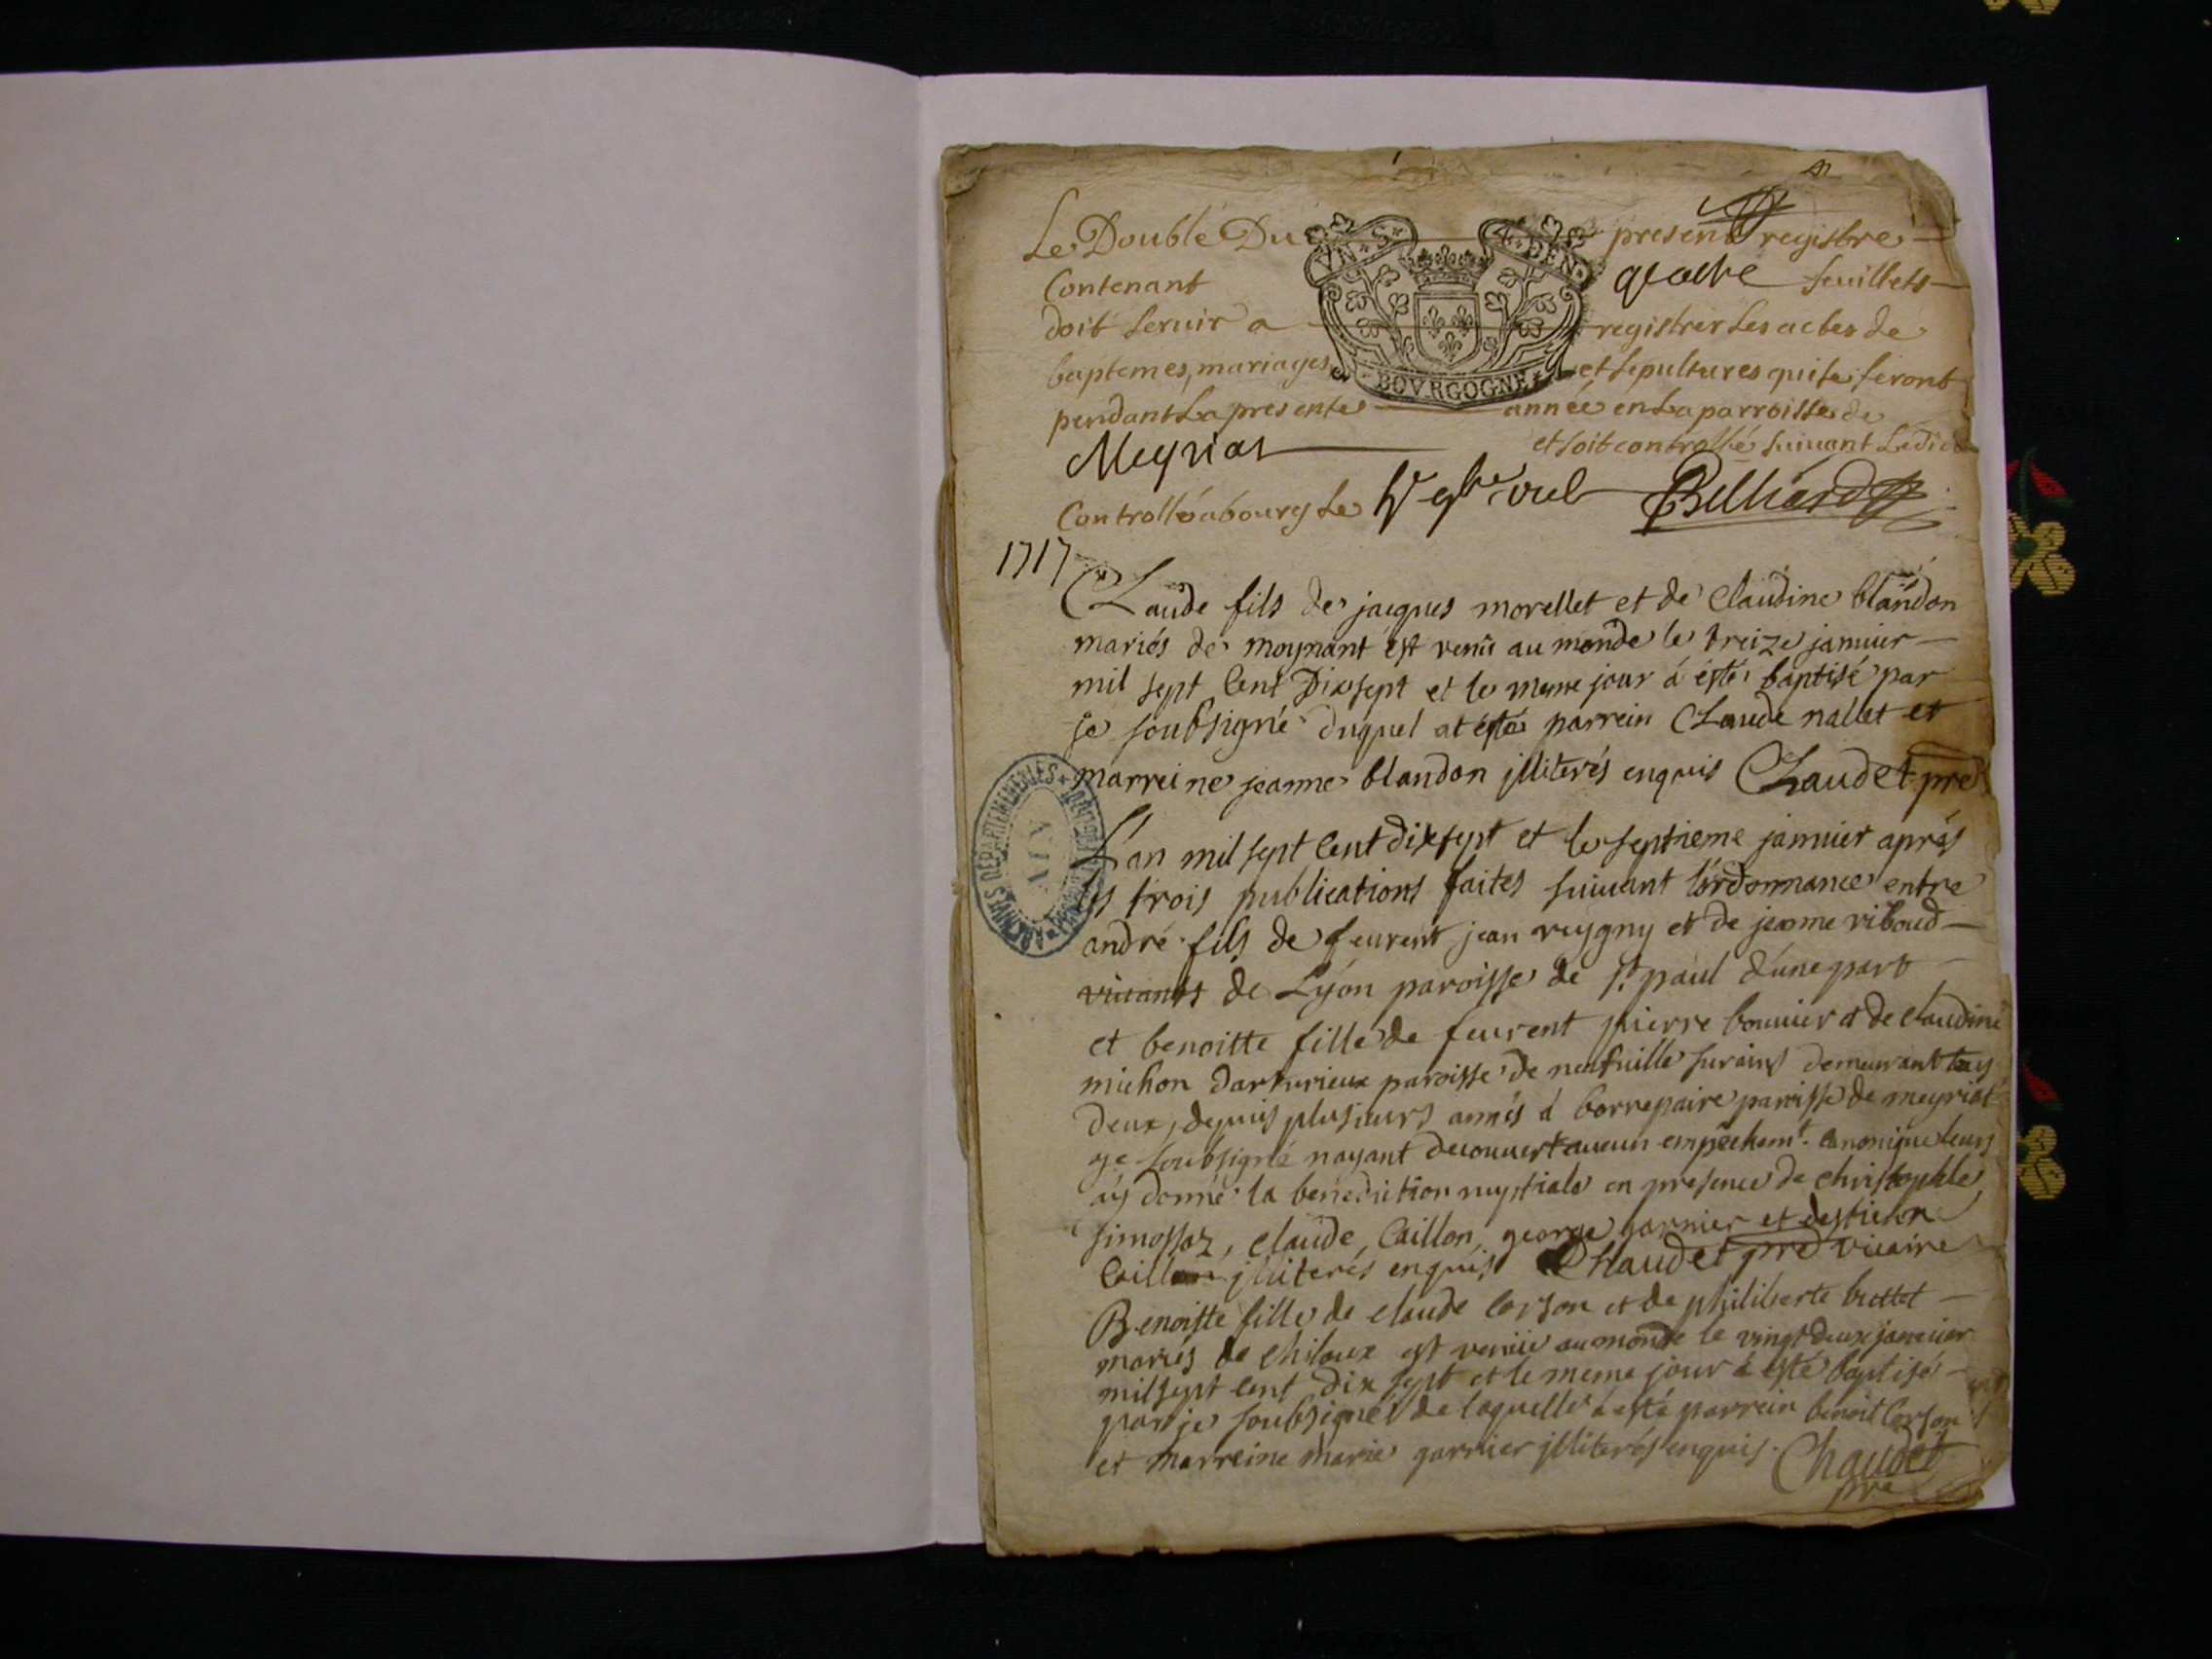 Le Double Du present registre
Contenant quatre feuillets
doit servir a registrer les actes de
baptemes, mariages et sepultures qui se feront
pendant La presente année en La parroisse de
Meyriat et soit controllé suivant L'edict
Controllé a bourg Le Belhiard
VN·S· 4·DEN·
BOVRGOGNE
1717
Claude fils de jacques morellet et de Claudine blandon
mariés de moynant est venu au monde le treize januier
mil sept Cent Dixsept et le meme jour á esté baptisé par
je soubsigné duquel at esté parrein Claude nallet et
marreine jeanne blandon jlliterés enquis Chaudet pre
ARCHIVES DÉPARTEMENTALES
AIN
L'an mil sept Cent dixsept et le septieme januier aprés
les trois publications faites suiuant l'ordonnance entre
andré fils de feurent jean reygny et de jeanne riboud
viuants de Lyon paroisse de st paul d'une part
et benoitte fille de feurent pierre bouuier et de claudine
michon darturieux paroisse de neufuille surains demeurant tous
deux, depuis plusieurs annés á borrepaire paroisse de meyriat
je soubsigné nayant decouuert aucun empéchemt. canonique leurs
aÿ donné la benediction nuptiale en presence de christophle
simossaz, claude Caillon, george garnier et destienne
Caillon jlliterés enquis Chaudet pre vicaire
Benoitte fille de claude corson et de philiberte buttet
mariés de chiloux est venüe au monde le vingt deux januier
mil sept cent dix sept et le meme jour á esté baptisé
par je soubsigné de laquelle á esté parrein benoit Corson
et marreine marie garnier jlliterés enquis. Chaudet
pre